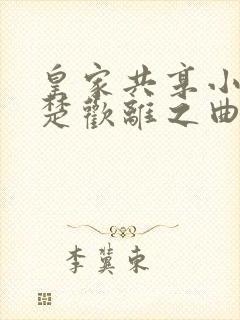 皇家共享小
楚歡離之曲
李冀東